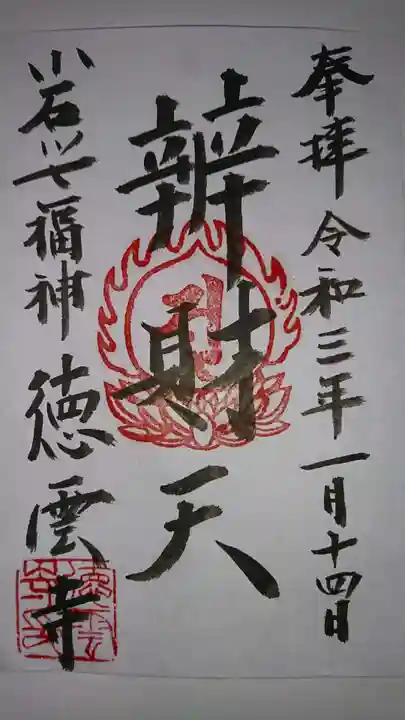 奉拝 令和三年一月十四日
辨財天
小岩七福神 徳雲寺